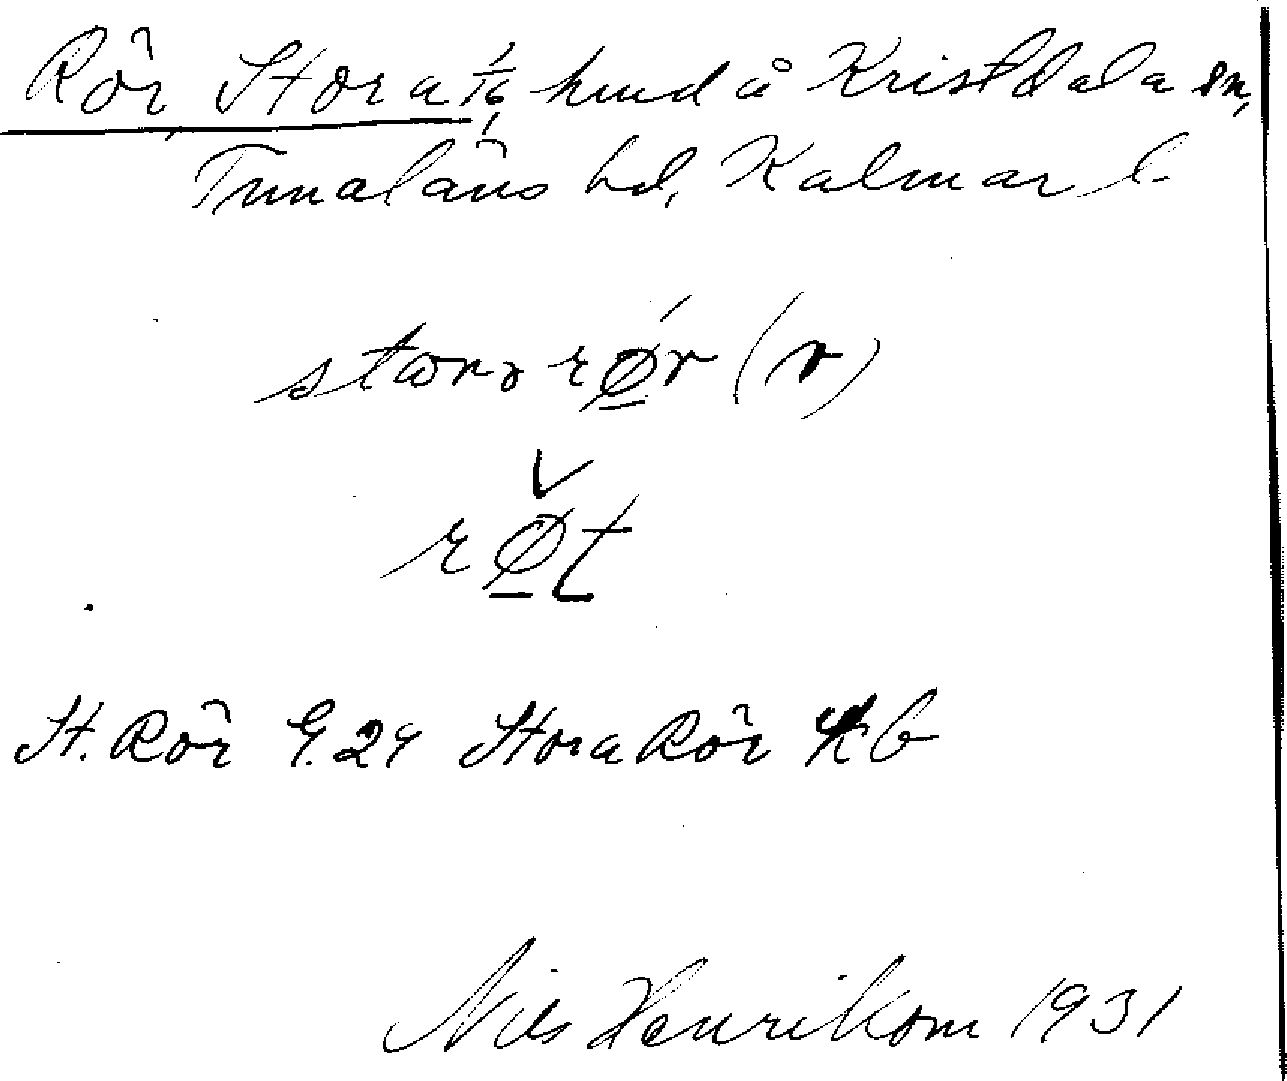 Rör, Stora 1/16, hmd å Kristdala sn,
Tunaläns hd, Kalmar l.
starə rǿ̱r (r)
rø̱t
St. Rör G. 24 Stora Rör Kb
Nils Henrikson 1931